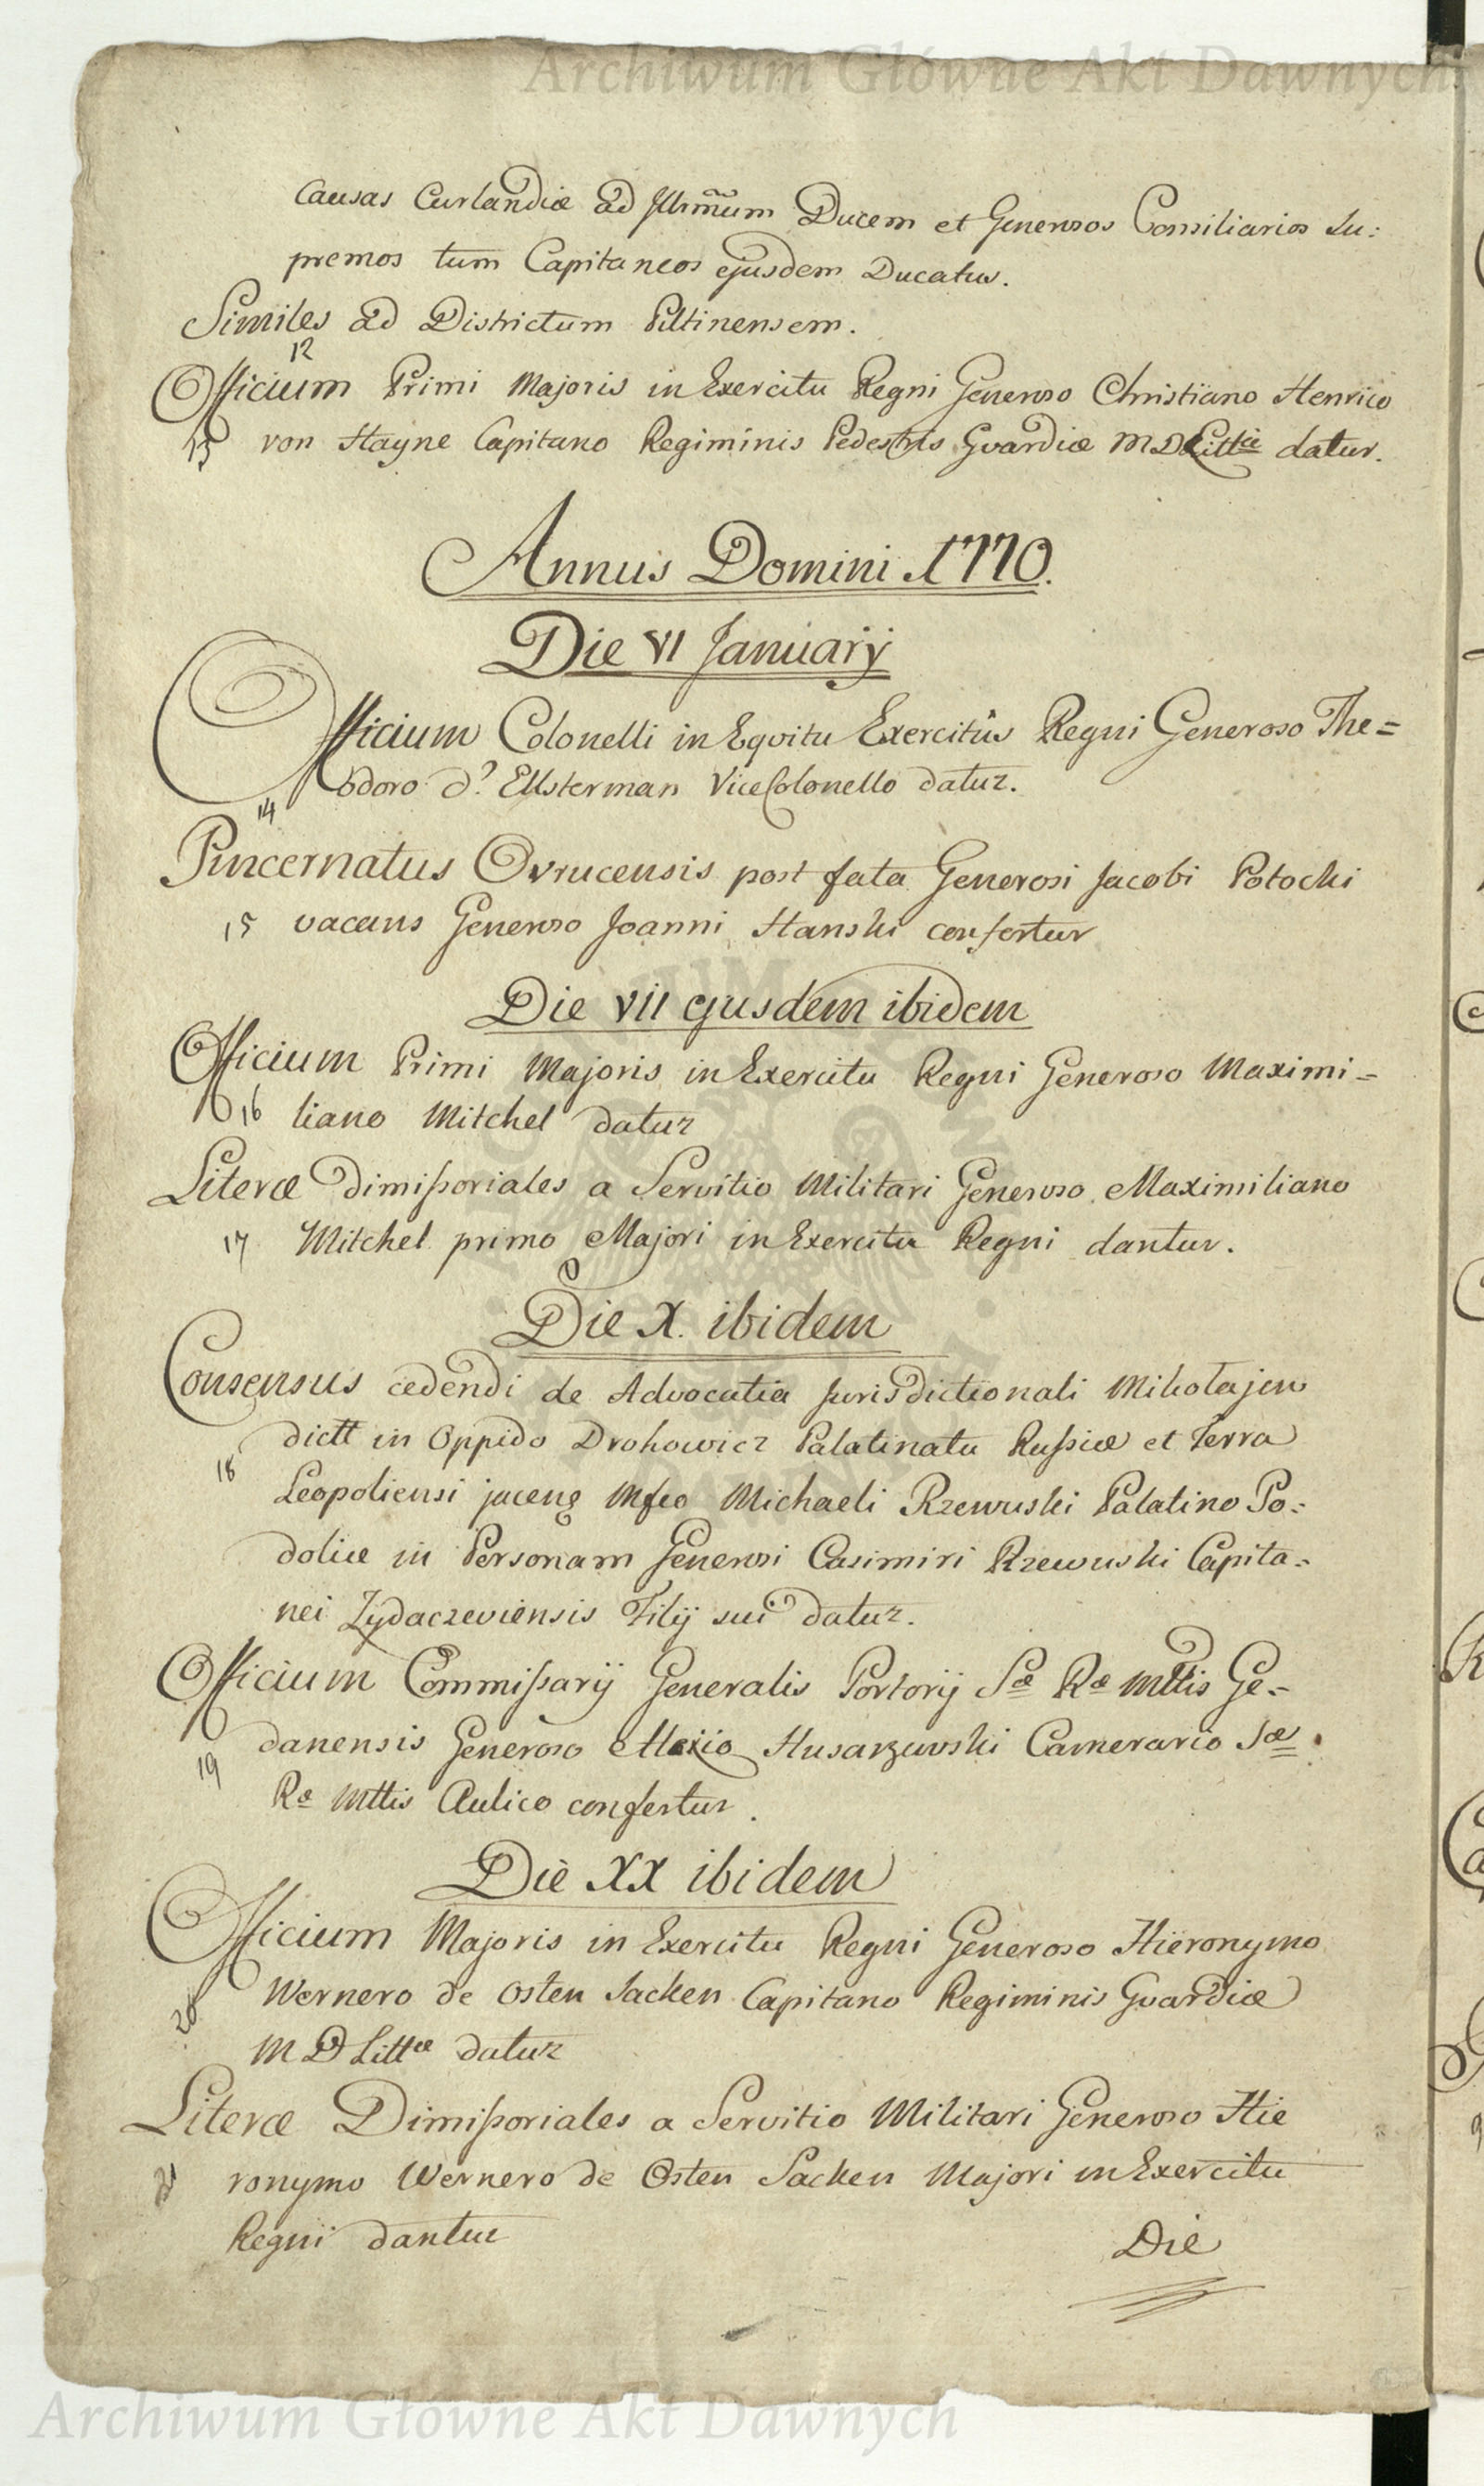 Archiwum Główne Akt Dawnych
Causas Curlandiæ ad Illrm̃um Ducem et Generosos Consiliarios Su:
premos tum Capitaneos ejusdem Ducatus.
Similes ad Districtum Piltinensem.
12
Officium Primi Majoris in Exercitu Regni Generoso Christiano Henrico
13 von Hayne Capitano Regiminis Pedestris Gvardiæ M D Littæ datur.
Annus Domini 1770.
Die VI Januarÿ
Officium Colonelli in Eqvitu Exercitûs Regni Generoso The=
odoro d' Ellsterman ViceColonello datur.
14
Pincernatus Ovrucensis post fata Generosi Jacobi Potocki
15 vacans Generoso Joanni Hanski confertur
Die VII ejusdem ibidem
Officium Primi Majoris in Exercitu Regni Generoso Maximi=
16 liano Mitchel datur
Literæ dimissoriales a Servitio Militari Generoso Maximiliano
17 Mitchel primo Majori in Exercitu Regni dantur.
Die X. ibidem
Consensus cedendi de Advocatia Jurisdictionali Mikołajow
dictt in Oppido Drohowicz Palatinatu Russiæ et Terra
18 Leopoliensi jacenꝫ Mfco Michaeli Rzewuski Palatino Po=
doliæ in Personam Generosi Casimiri Rzewuski Capita=
nei Zydaczeviensis Filÿ sui datur.
Officium Commissarÿ Generalis Portorÿ Sæ Ræ Mttis Ge=
19 danensis Generoso Alexio Husarzewski Camerario Sæ
Ræ Mttis Aulico confertur.
Die XX ibidem
Officium Majoris in Exercitu Regni Generoso Hieronymo
20 Wernero de Osten Sacken Capitano Regiminis Gvardiæ
M D Littæ datur
Literæ Dimissoriales a Servitio Militari Generoso Hie
21 ronymo Wernero de Osten Sacken Majori in Exercitu
Regni dantur
Die
Archiwum Główne Akt Dawnych